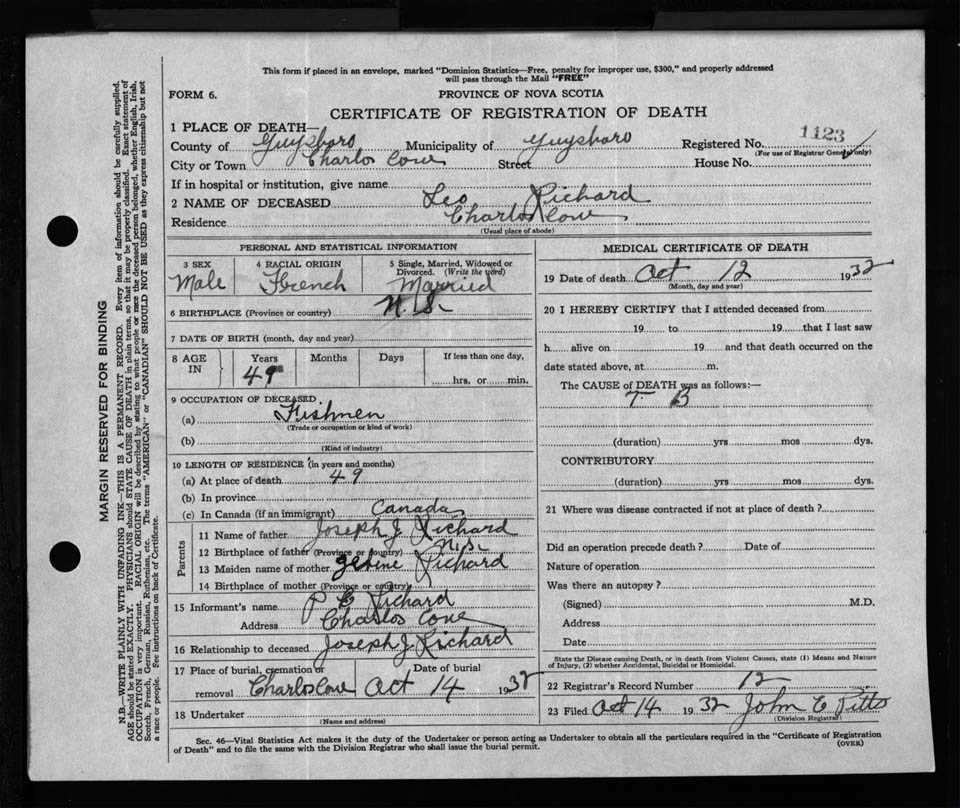 This form if placed in an envelope, marked "Dominion Statistics—Free, penalty for improper use, $300," and properly addressed
will pass through the Mail "FREE"
FORM 6.
PROVINCE OF NOVA SCOTIA
CERTIFICATE OF REGISTRATION OF DEATH
1 PLACE OF DEATH—
County of Guysboro Municipality of Guysboro Registered No. 1123
(For use of Registrar General only)
City or Town Charlos Cove Street House No.
If in hospital or institution, give name
2 NAME OF DECEASED Leo Richard
Residence Charlos Cove
(Usual place of abode)
PERSONAL AND STATISTICAL INFORMATION
3 SEX 4 RACIAL ORIGIN 5 Single, Married, Widowed or
Divorced. (Write the word)
Male French Married
6 BIRTHPLACE (Province or country) N.S.
7 DATE OF BIRTH (month, day and year)
8 AGE IN Years Months Days If less than one day,
49 hrs. or min.
9 OCCUPATION OF DECEASED
(a) Fishmen
(Trade or occupation or kind of work)
(b)
(Kind of industry)
10 LENGTH OF RESIDENCE (in years and months)
(a) At place of death 49
(b) In province
(c) In Canada (if an immigrant) Canada
Parents
11 Name of father Joseph J. Richard
12 Birthplace of father (Province or country) N.S.
13 Maiden name of mother Richard
14 Birthplace of mother (Province or country)
15 Informant's name P E Richard
Address Charlos Cove
16 Relationship to deceased Joseph J. Richard
17 Place of burial, cremation or Date of burial
removal Charlos Cove Oct 14 1932
18 Undertaker
(Name and address)
MEDICAL CERTIFICATE OF DEATH
19 Date of death Oct 12 1932
(Month, day and year)
20 I HEREBY CERTIFY that I attended deceased from
19 to 19 that I last saw
h alive on 19 and that death occurred on the
date stated above, at m.
The CAUSE of DEATH was as follows:—
T B
(duration) yrs mos dys.
CONTRIBUTORY
(duration) yrs mos dys.
21 Where was disease contracted if not at place of death?
Did an operation precede death? Date of
Nature of operation
Was there an autopsy?
(Signed) M.D.
Address
Date
State the Disease causing Death, or in death from Violent Causes, state (1) Means and Nature
of Injury, (2) whether Accidental, Suicidal or Homicidal.
22 Registrar's Record Number 12
23 Filed Oct 14 1932 John C Pitts
(Division Registrar)
Sec. 46—Vital Statistics Act makes it the duty of the Undertaker or person acting as Undertaker to obtain all the particulars required in the "Certificate of Registration
of Death" and to file the same with the Division Registrar who shall issue the burial permit.
(OVER)
MARGIN RESERVED FOR BINDING
N.B.—WRITE PLAINLY WITH UNFADING INK—THIS IS A PERMANENT RECORD. Every item of information should be carefully supplied.
AGE should be stated EXACTLY. PHYSICIANS should STATE CAUSE OF DEATH in plain terms, so that it may be properly classified. Exact statement of
OCCUPATION is very important. RACIAL ORIGIN will be described by stating to what people or race the deceased person belonged, whether English, Irish,
Scotch, French, German, Russian, Ruthenian, etc. The terms "AMERICAN" or "CANADIAN" SHOULD NOT BE USED as they express citizenship but not
a race or people. See instructions on back of Certificate.